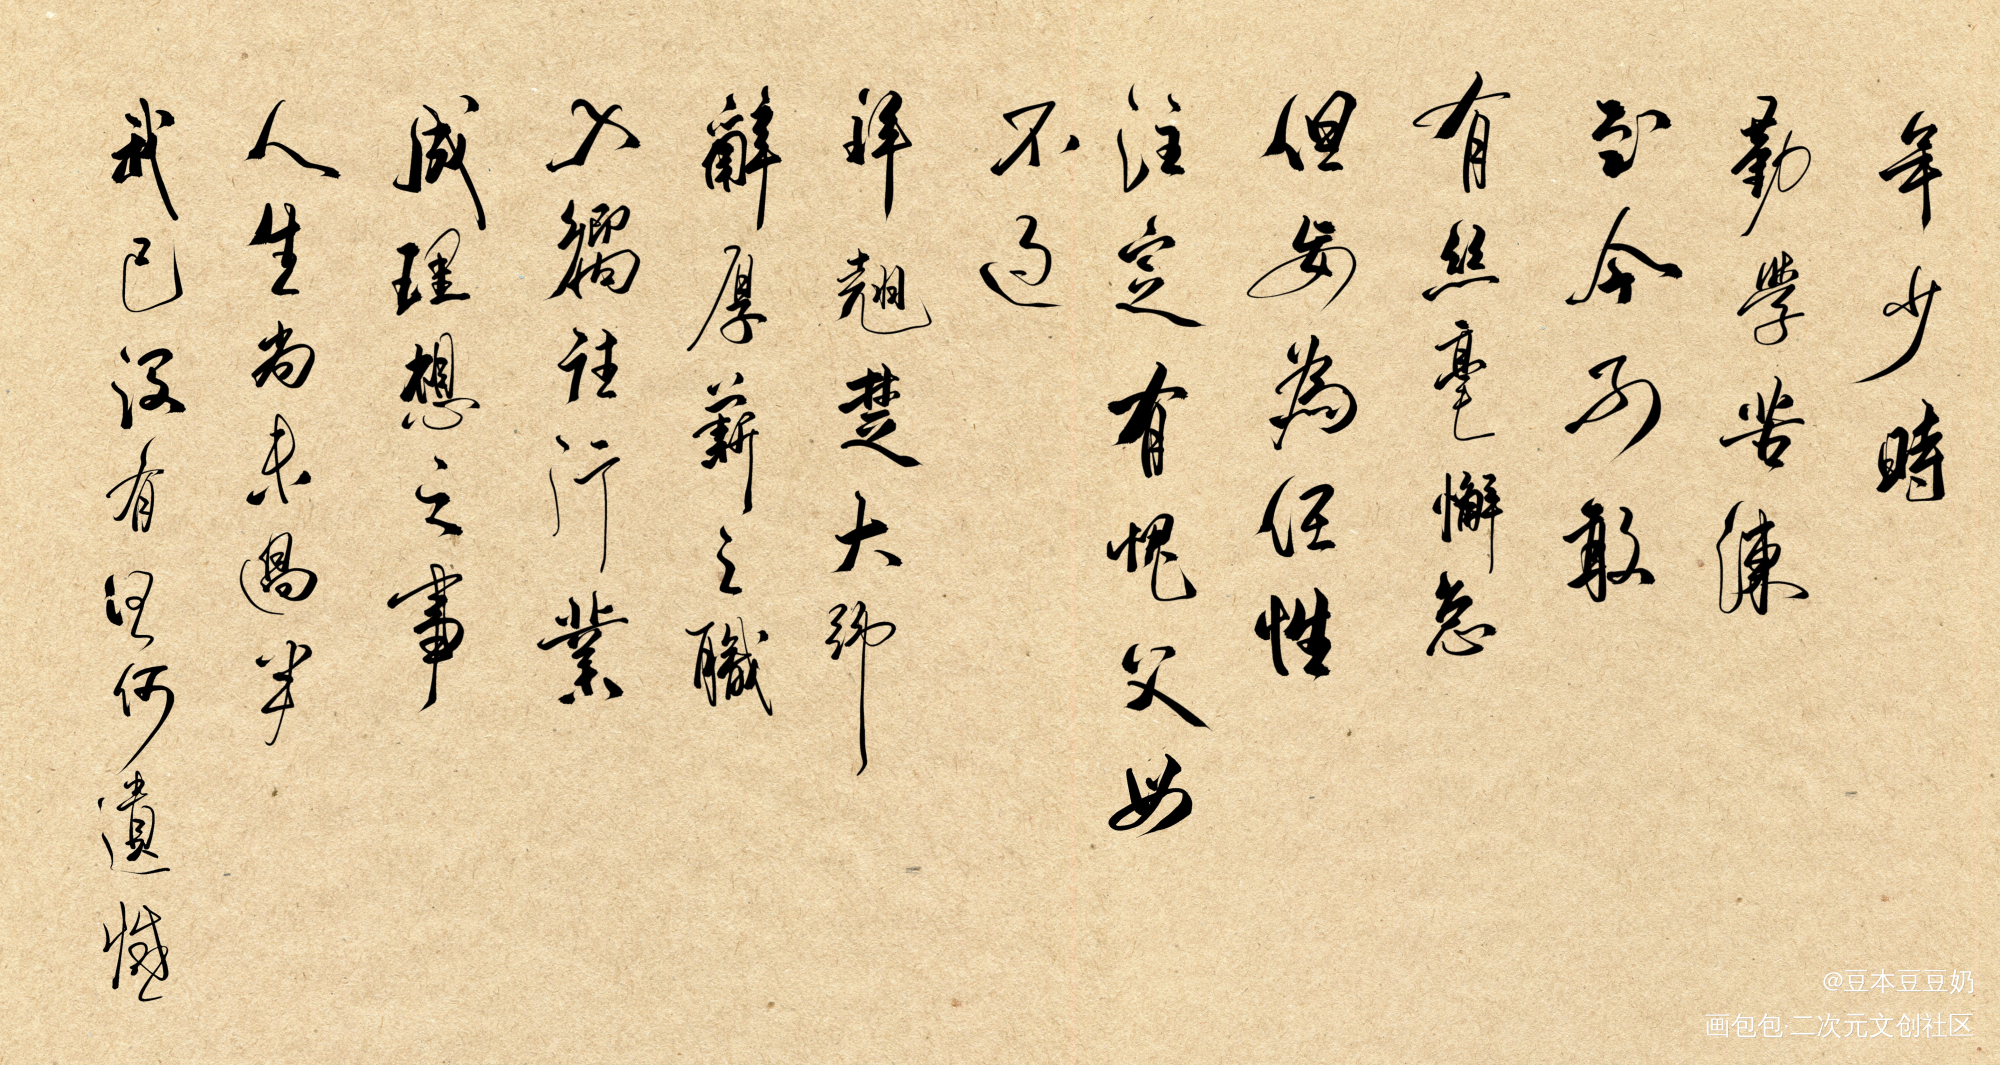 年少時
勤學苦練
至今不敢
有絲毫懈怠
但妄為任性
注定有愧父母
不過
拜翹楚大師
辭厚薪之職
入嚮往行業
成理想之事
人生尚未過半
我已沒有任何遺憾
@豆本豆豆奶
画包包·二次元文创社区